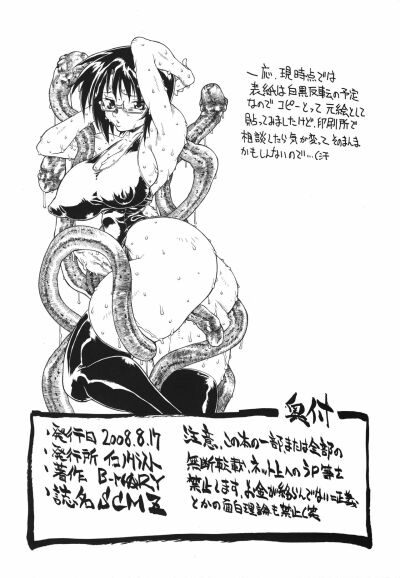 一応、現時点では
表紙は白黒反転の予定
なのでコピーとって元絵として
貼ってみましたけど、印刷所で
相談したら気が変って、そのまんま
かもしんないので…(汗
奥付
・発行日 2008.8.17
・発行所
・著作 B-MARY
・誌名 SCM五
注意、この本の一部または全部の
無断転載、ネット上へのうP等を
禁止します。お金が絡らんでない=正義
とかの面白理論も禁止(笑